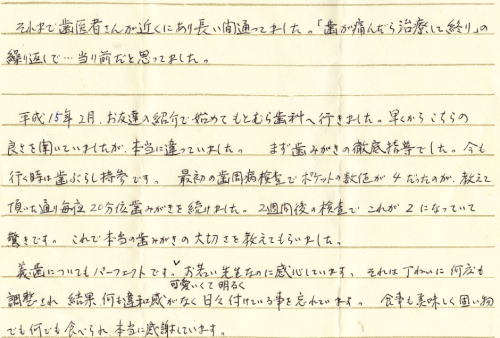 それまで歯医者さんが近くにあり長い間通ってました。「歯が痛んだら治療して終り」の
繰り返しで…当り前だと思ってました。
平成15年2月、お友達の紹介で始めてもとむら歯科へ行きました。早くからこちらの
良さを聞いていましたが、本当に違っていました。 まず歯みがきの徹底指導でした。今も
行く時は歯ぶらし持参です。 最初の歯周病検査でポケットの数値が4だったのが、教えて
頂いた通り毎夜20分位歯みがきを続けました。2週間後の検査でこれが2になっていて
驚きです。これで本当の歯みがきの大切さを教えてもらいました。
義歯についてもパーフェクトです。お若い先生なのに感心しています。それは丁ねいに何度も
可愛いくて明るく
調整され 結果 何も違和感がなく日々付けている事を忘れています。 食事も美味しく固い物
でも何でも食べられ本当に感謝しています。